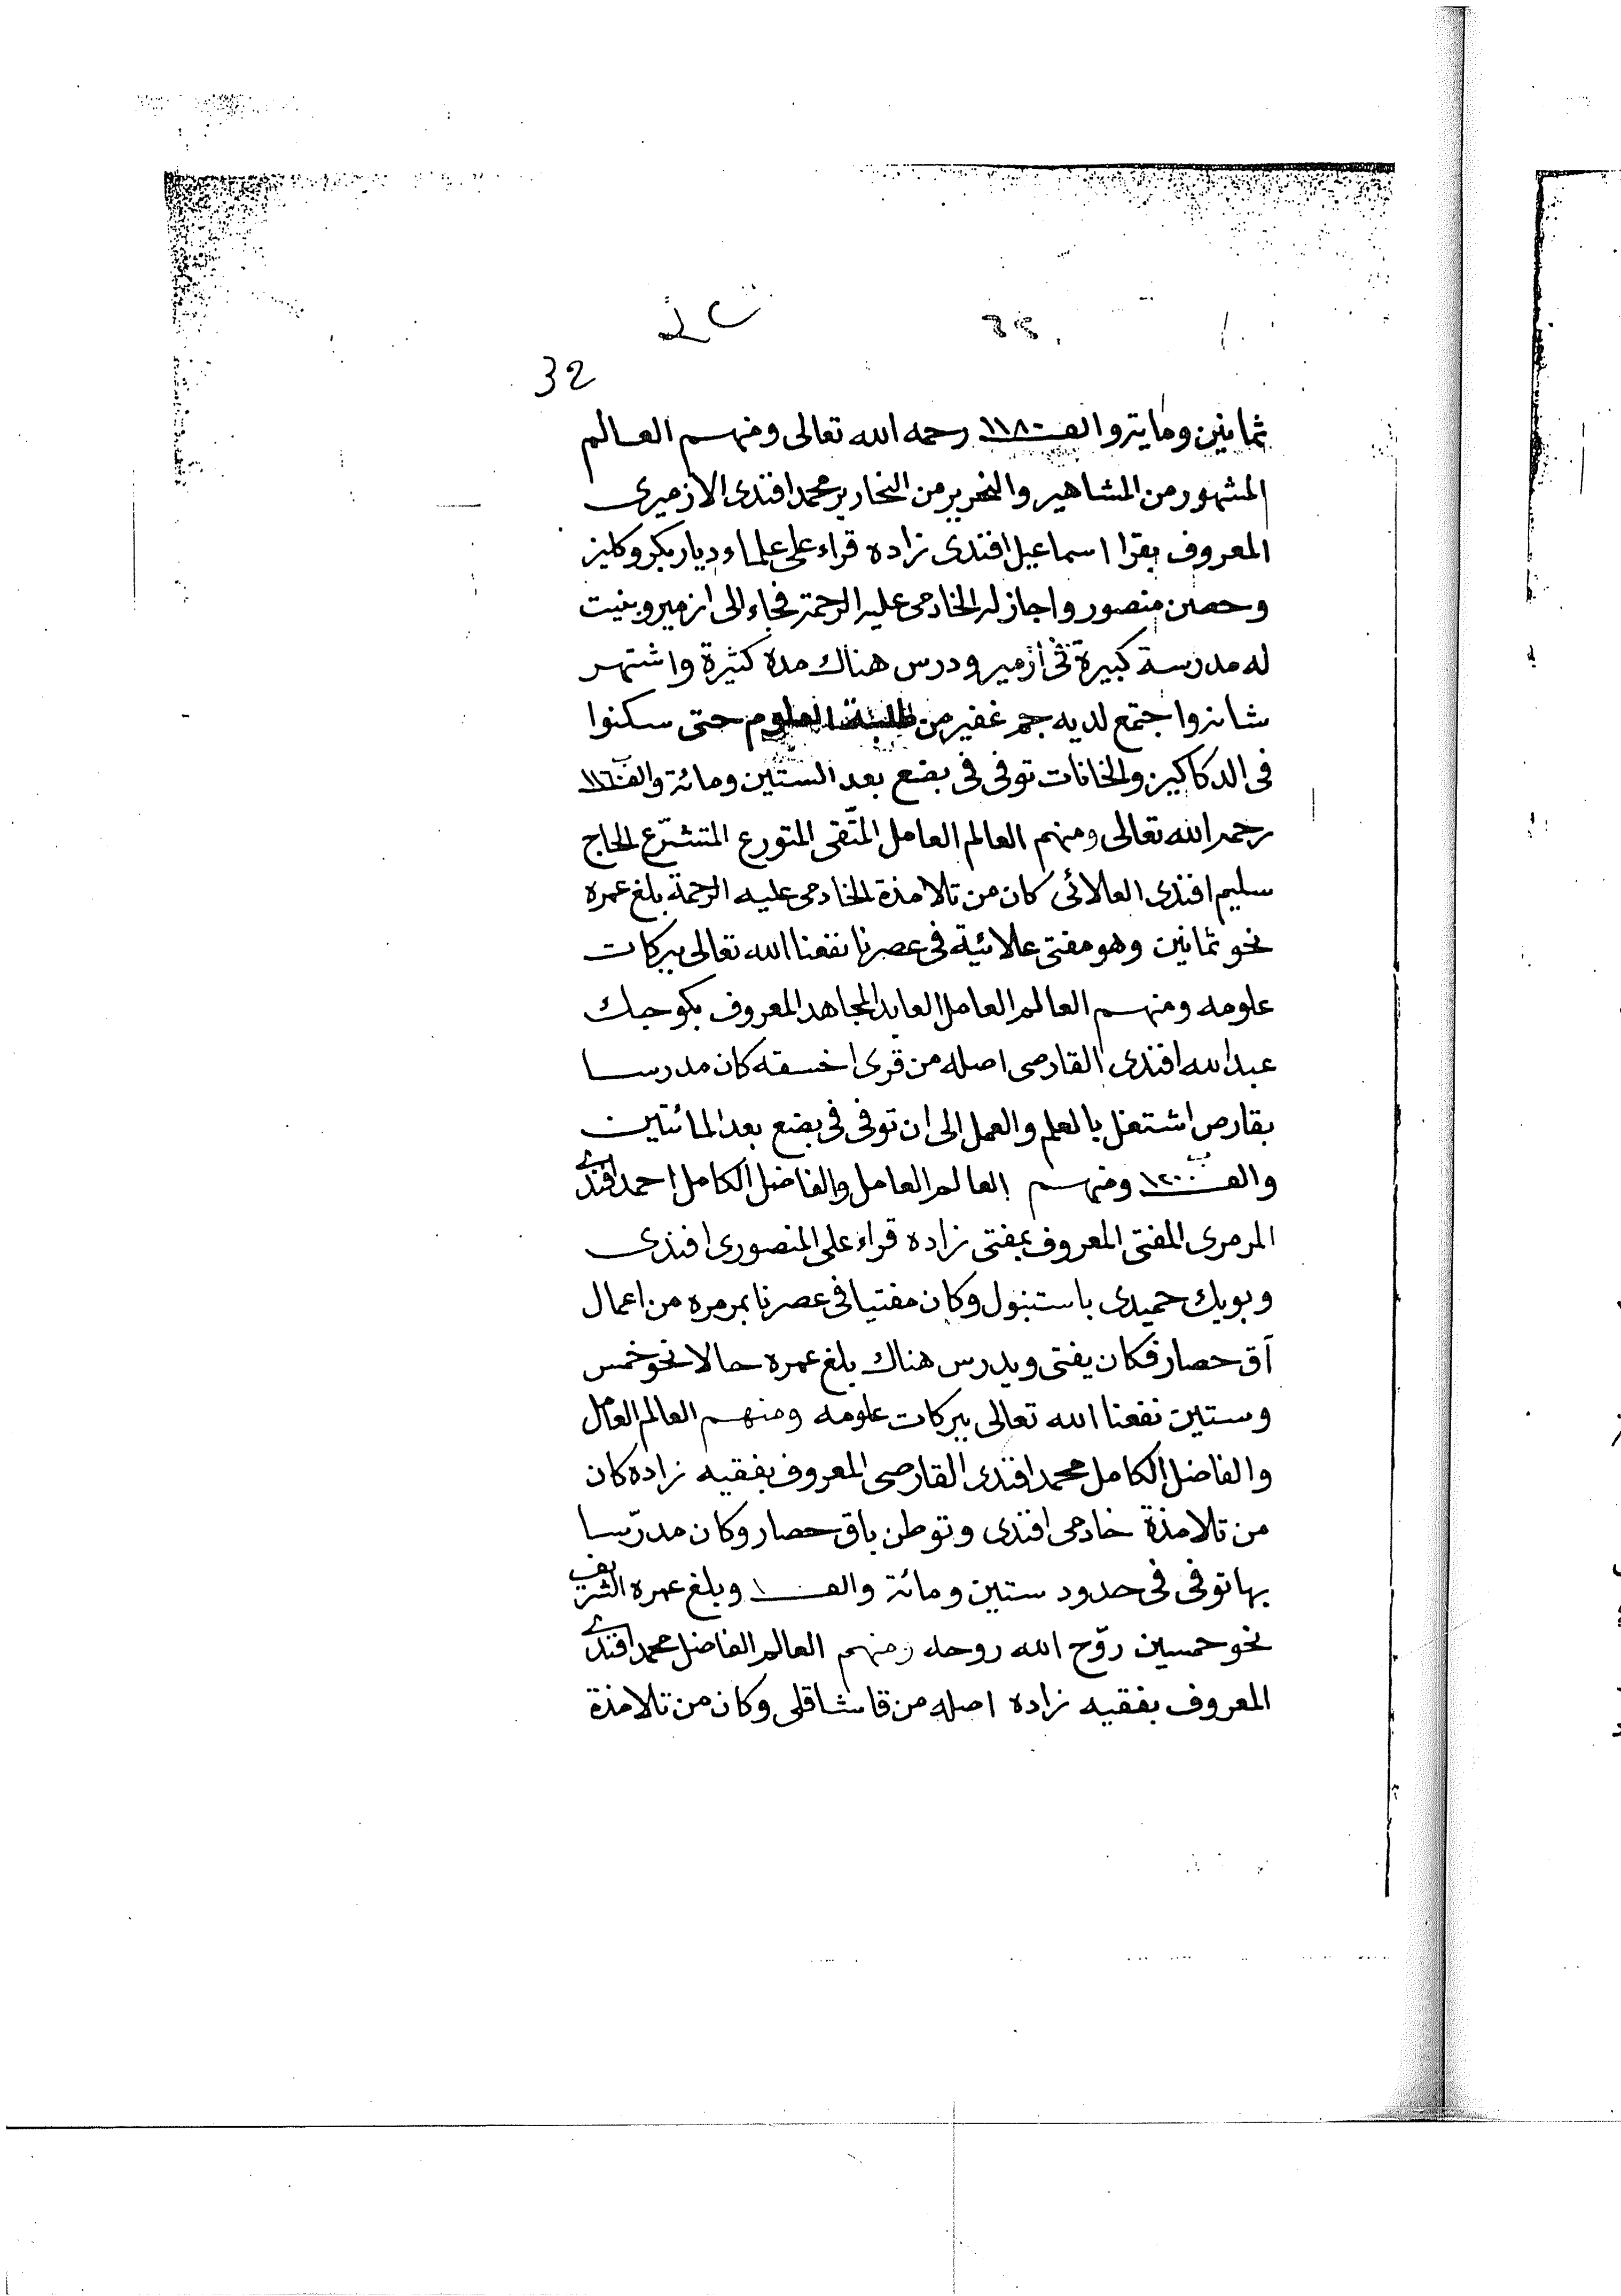 32
ثمانين وماية والف ١١٨٠ رحمه الله تعالى ومنهم العالم
المشهور من المشاهير والنحرير من النحارير محمد افندى الازميرى
المعروف بقرا اسماعيل افندى زاده قراء على علماء ديار بكر وكليز
وحصن منصور واجاز له الخادمى عليه الرحمة فجاء الى ازمير وبنيت
له مدرسة كبيرة فى ازمير ودرس هناك مدة كثيرة واشتهر
شانه واجتمع لديه جم غفير من طلبة العلوم حتى سكنوا
فى الدكاكين والخانات توفى فى بضع بعد الستين ومائة والف ١١٦٠
رحمه الله تعالى ومنهم العالم العامل المتّقى المتورع المتشرّع الحاج
سليم افندى العلائى كان من تلامذة الخادمى عليه الرحمة بلغ عمره
نحو ثمانين وهو مفتى علائية فى عصرنا نفعنا الله تعالى ببركات
علومه ومنهم العالم العامل العابد المجاهد المعروف بكوجك
عبد الله افندى القارصى اصله من قرى اخسقه كان مدرسا
بقارص اشتغل بالعلم والعمل الى ان توفى فى بضع بعد المائتين
والف ١٢٠٠ ومنهم العالم العامل والفاضل الكامل احمد افندى
المرمرى المفتى المعروف بمفتى زاده قراء على المنصورى افندى
وبويك حميدى باستنبول وكان مفتيا فى عصرنا بمرمره من اعمال
آق حصار فكان يفتى ويدرس هناك بلغ عمره حالا نحو خمس
وستين نفعنا الله تعالى ببركات علومه ومنهم العالم العامل
والفاضل الكامل محمد افندى القارصى المعروف بفقيه زاده كان
من تلامذة خادمى افندى وتوطن باق حصار وكان مدرّسا
بها توفى فى حدود ستين ومائة والف وبلغ عمره الشريف
نحو خمسين روّح الله روحه ومنهم العالم الفاضل محمد افندى
المعروف بفقيه زاده اصله من قاشاقلى وكان من تلامذة